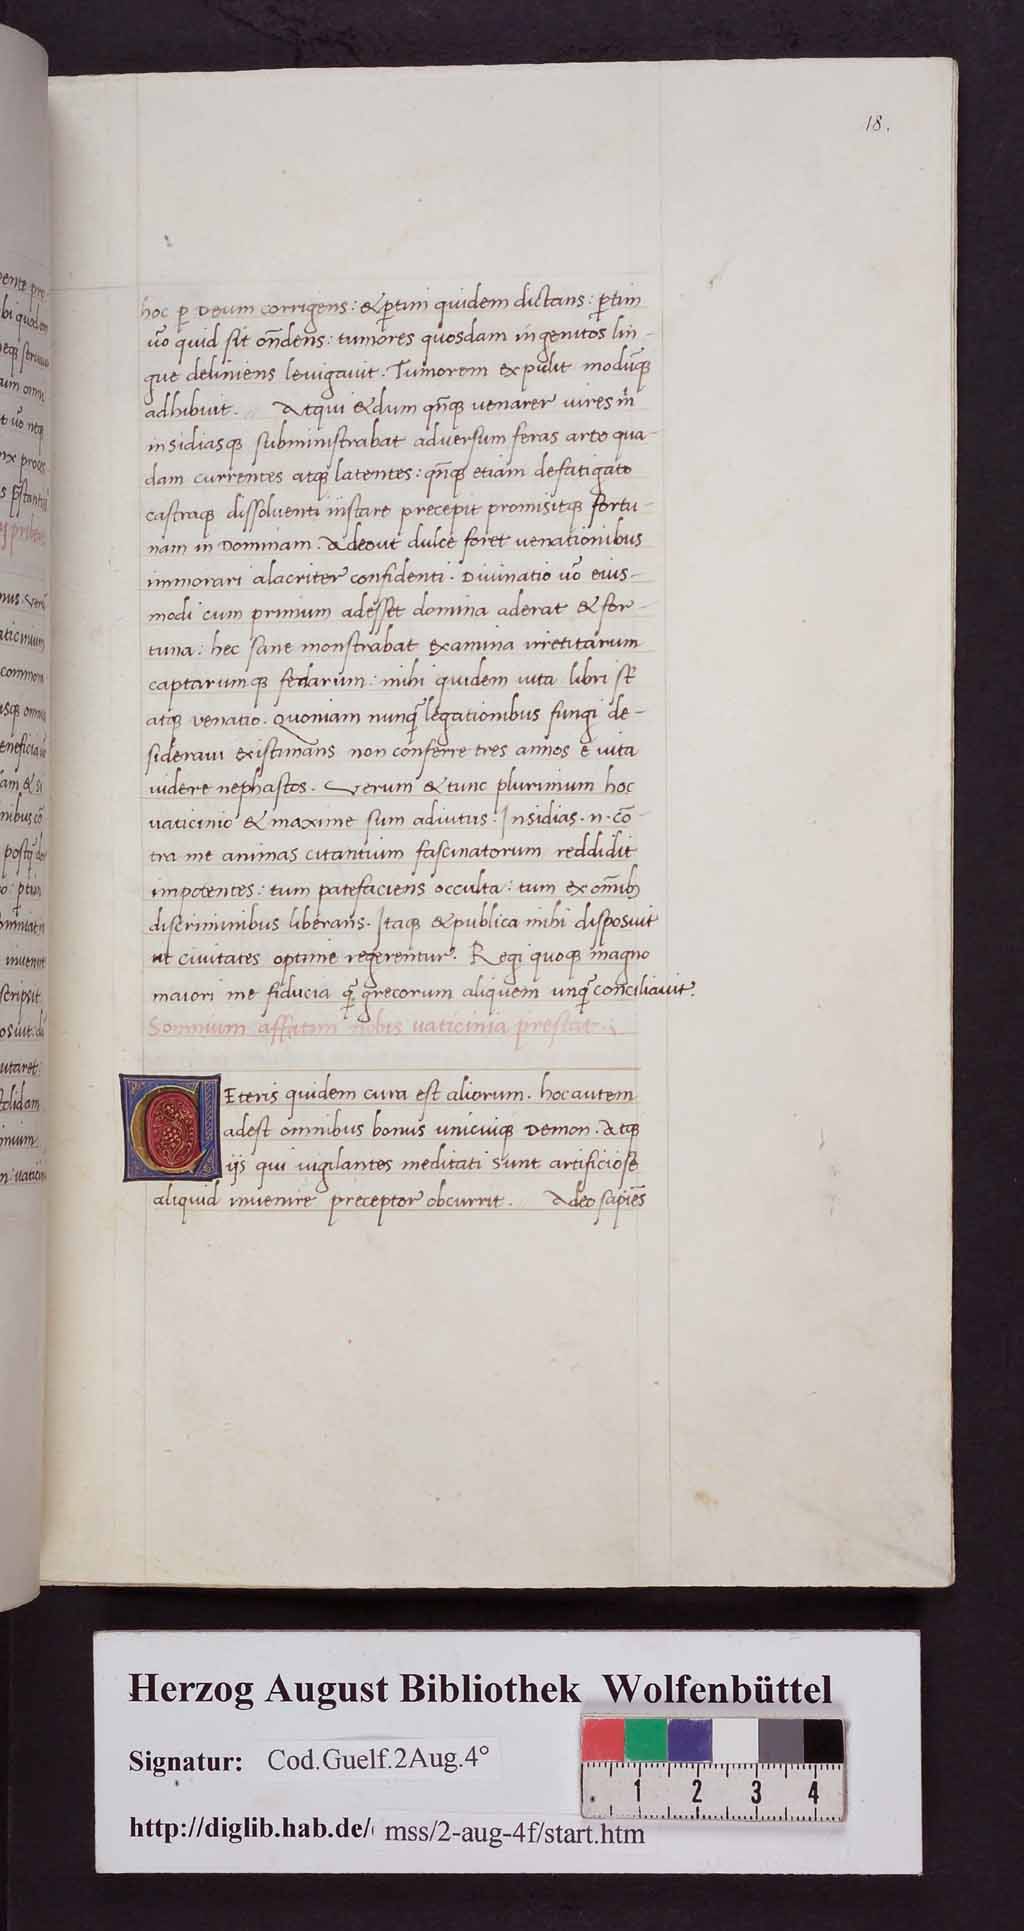 18.
hoc p̱ Deum corrigens: & p̱tim quidem dictans: p̱tim
ūo quid sit on̄dens: tumores quosdam ingenitos lin-
gue deliniens levigavit. Tumorem expulit modūqꜫ
adhibuit. Atqui & dum qn̄qꜫ venarer vires m̄
insidiasqꜫ subministrabat adversum feras arte qua-
dam currentes atqꜫ latentes: qn̄qꜫ etiam defatigato
castraqꜫ dissolventi instare precepit promisitqꜫ fortu-
nam in Dominam. Adeout dulce foret venationibus
immorari alacriter confidenti. Divinatio ūo eius-
modi cum primum adesset domina aderat & for-
tuna: hec sane monstrabat examina irretitarum
captarumqꜫ ferarum: mihi quidem vita libri st̄
atqꜫ venatio. Quoniam nunq̄ legationibus fungi de-
sideravi existimans non conferre tres annos e vita
videre nephastos. Verum & tunc plurimum hoc
vaticinio & maxime sum adiutus: Insidias .n. cō-
tra me animas citantium fascinatorum reddidit
impotentes: tum patefaciens occulta: tum ex om̄ibꜫ
discriminibus liberans. Itaqꜫ & publica mihi disposuit
ut civitates optime regerentur. Regi quoqꜫ magno
maiori me fiducia q̄ grecorum aliquem unq̄ conciliavit.
Somnium affatim nobis vaticinia prestat.
CEteris quidem cura est aliorum. hoc autem
adest omnibus bonus unicuiqꜫ Demon. Atqꜫ
ijs qui vigilantes meditati sunt artificiose
aliquid invenire preceptor obcurrit. Adeo sapiēs
Herzog August Bibliothek Wolfenbüttel
Signatur: Cod.Guelf.2Aug.4°
1 2 3 4
http://diglib.hab.de/ mss/2-aug-4f/start.htm